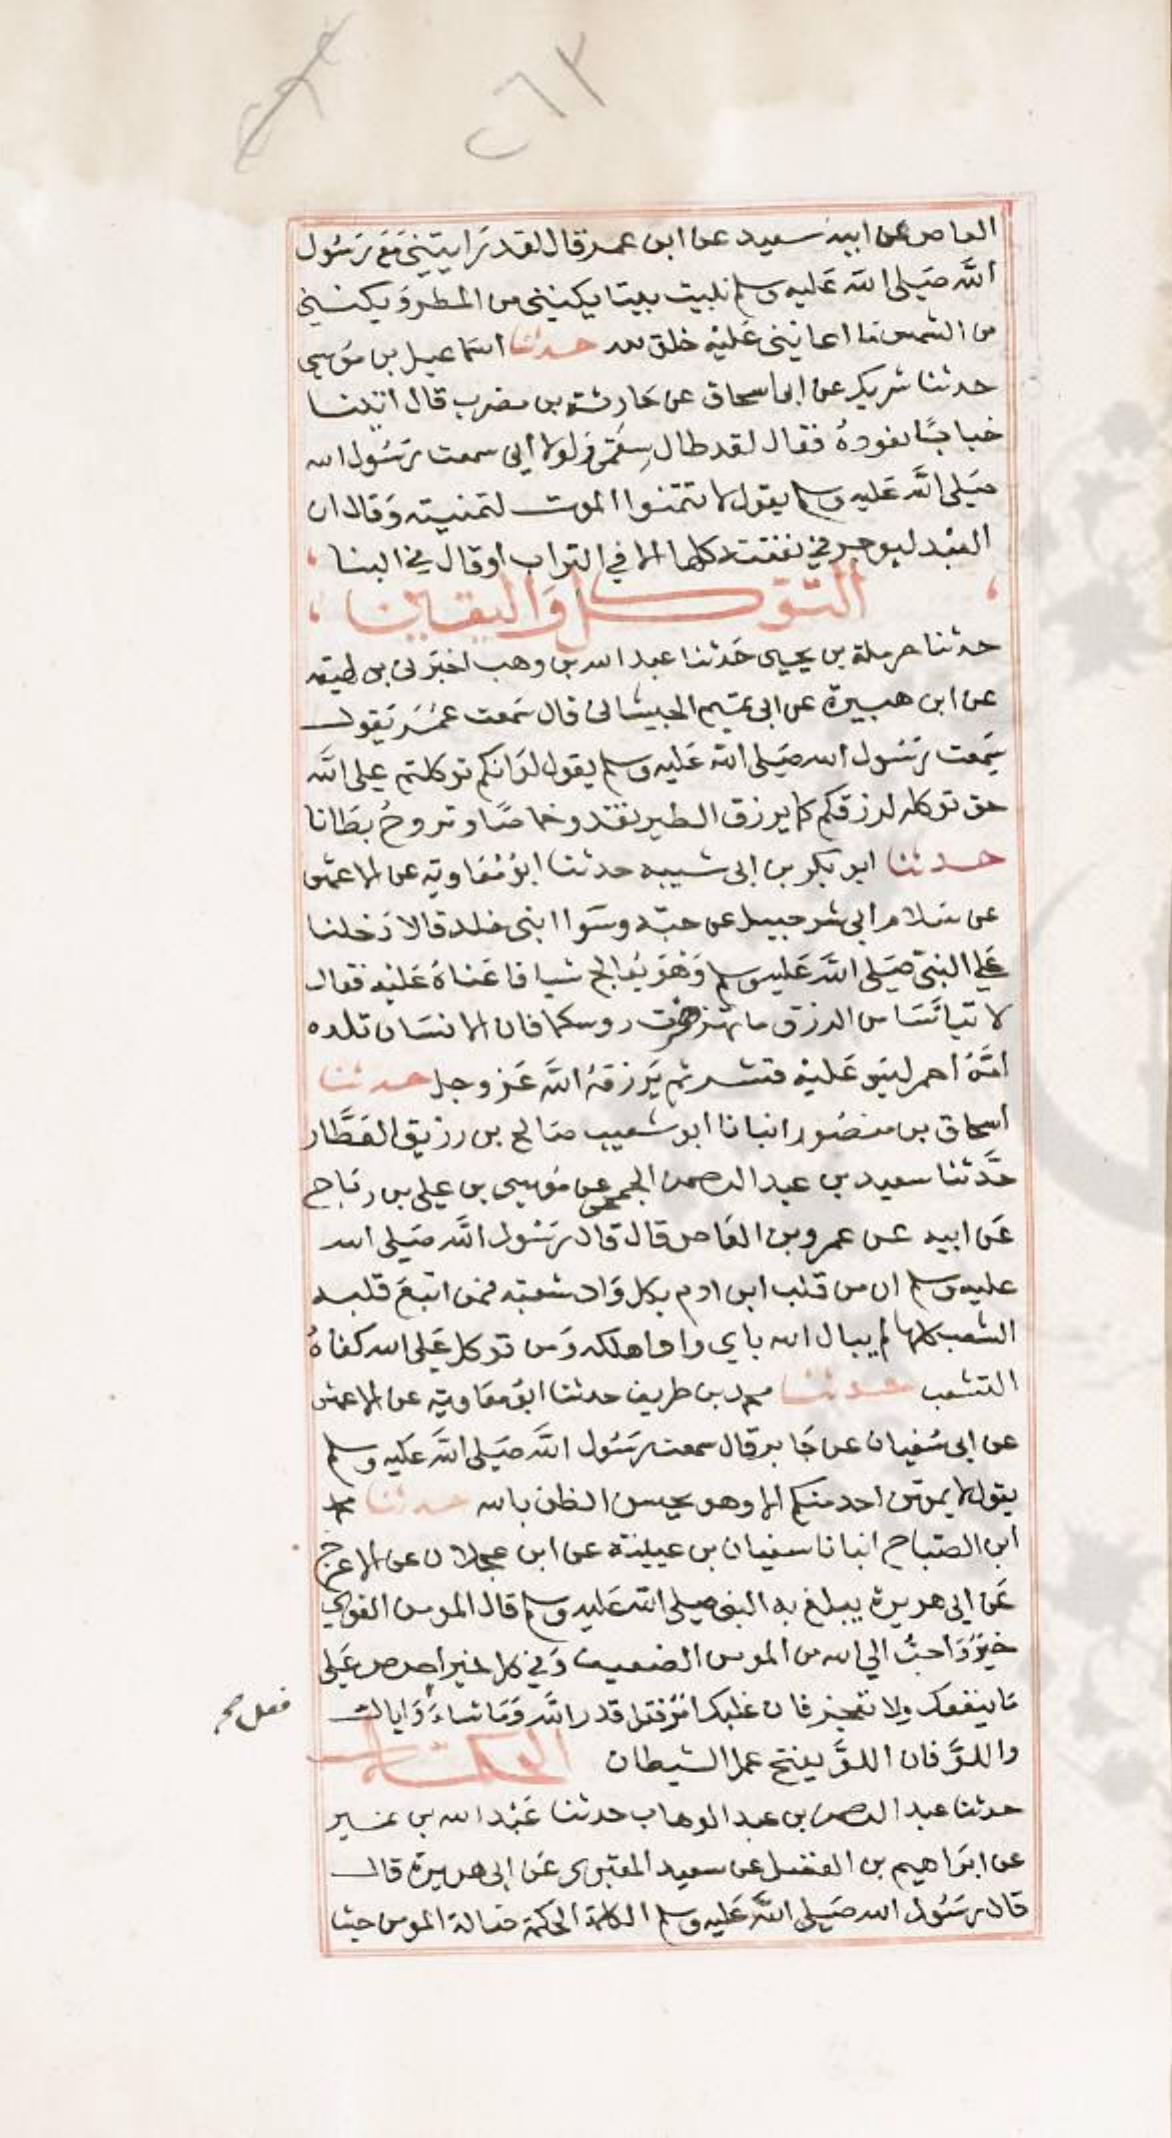 ٢٦٣
العاص عن ابيه سعيد عن ابن عمر قال لقد رَايتني مَعَ رَسُول
اللَّه صَلى الله عَليه وسلم نبيت بيتا يكنني من المطر وَيكنني
من الشمس مَا اعانني عَليْه خلق الله حدثنا اسمَاعيل بن مُوسي
حدثنا شريك عن ابي اسحاق عن حَارثة بن مضرب قال اتينا
خبابًا نعودهُ فقال لقد طال سقمي وَلولا أني سمعت رَسُول الله
صَلى اللَّه عَليه وسلم يقول لا تتمنوا الموت لتمنيته وَقال ان
العبْد ليوجر في نفقته كلها الا في التراب أو قال في البنا
التوكل وَاليقين
حدثنا حرملة بن يحيى حَدثنا عبد الله بن وهب اخبَرني بن لهيعه
عن ابن هبيرَة عن ابي تميم الجيشاني قال سَمعت عُمَر يَقول
سَمعت رَسُول الله صَلى الله عَليه وسلم يقول لوَ انكم توكلتم على اللَّه
حق توكله لرزقكم كما يرزق الطير تغدو خماصًا وتروحُ بطَانا
حدثنا ابو بكر بن ابي شيبه حدثنا ابوُ مُعَاوية عن الاعمش
عن سَلام ابي شرحبيل عن حبّه وسَوا ابني خلد قالا دَخلنا
عَلي النبيّ صَلى اللَّه عَليه وسلم وَهوَ يُعالج شيا فاعَناهُ عَليْه فقال
لا تيأسَا من الرزق ما تهزهزت روسكما فان الانسَان تلده
امّهُ احمر ليسَ عَليْه قشر ثم يَرزقهُ اللَّه عَز وجل حدثنا
اسحاق بن منصُور انبانا ابو شعيب صَالح بن رزيق العَطَّار
حَدَّثنا سعيد بن عبد الرحمن الجمحي عن مُوسى بن علي بن رَبَاح
عَن ابيه عن عمرو بن العَاص قال قال رَسُول اللَّه صَلى الله
عليه وسلم ان من قلب ابن ادم بكل وَاد شعبَه فمن اتبعَ قلبه
الشعب كلها لم يبال الله باي واد اهلكه وَمن توكل عَلى الله كفاهُ
التشعب حدثنا محمد بن طريف حدثنا ابوُ معَاوية عن الاعمش
عن ابي سُفيان عن جَابر قال سمعت رَسُول اللَّه صَلى اللَّه عَليه وسلم
يقول لا يموتن احد منكم الا وهو يحسن الظن بالله حدثنا محمد
ابن الصَباح انبانا سفيان بن عيينة عن ابن عجلان عن الاعرج
عَن ابي هريرة يبلغ به النبي صلى الله عَليه وسلم قال المومن القوي
خيرٌ وَاحبُّ الي الله من المومن الضعيف وَفي كل خير احرص عَلى
مَا ينفعك ولا تعجز فان غلبك امْر فقل قدر اللَّه وَمَا شاءَ وَاياك
فعل صح
واللوَّ فان اللوَّ يفتح عمل الشيطان الحكمة
حدثنا عبد الرحمن بن عبد الوهاب حدثنا عَبْد الله بن نمير
عن ابرَاهيم بن الفضل عن سعيد المقبري عَن ابي هريرَة قال
قال رسَوُل الله صَلي اللَّه عَليه وسلم الكلمة الحكمة ضالة المومن حيثما